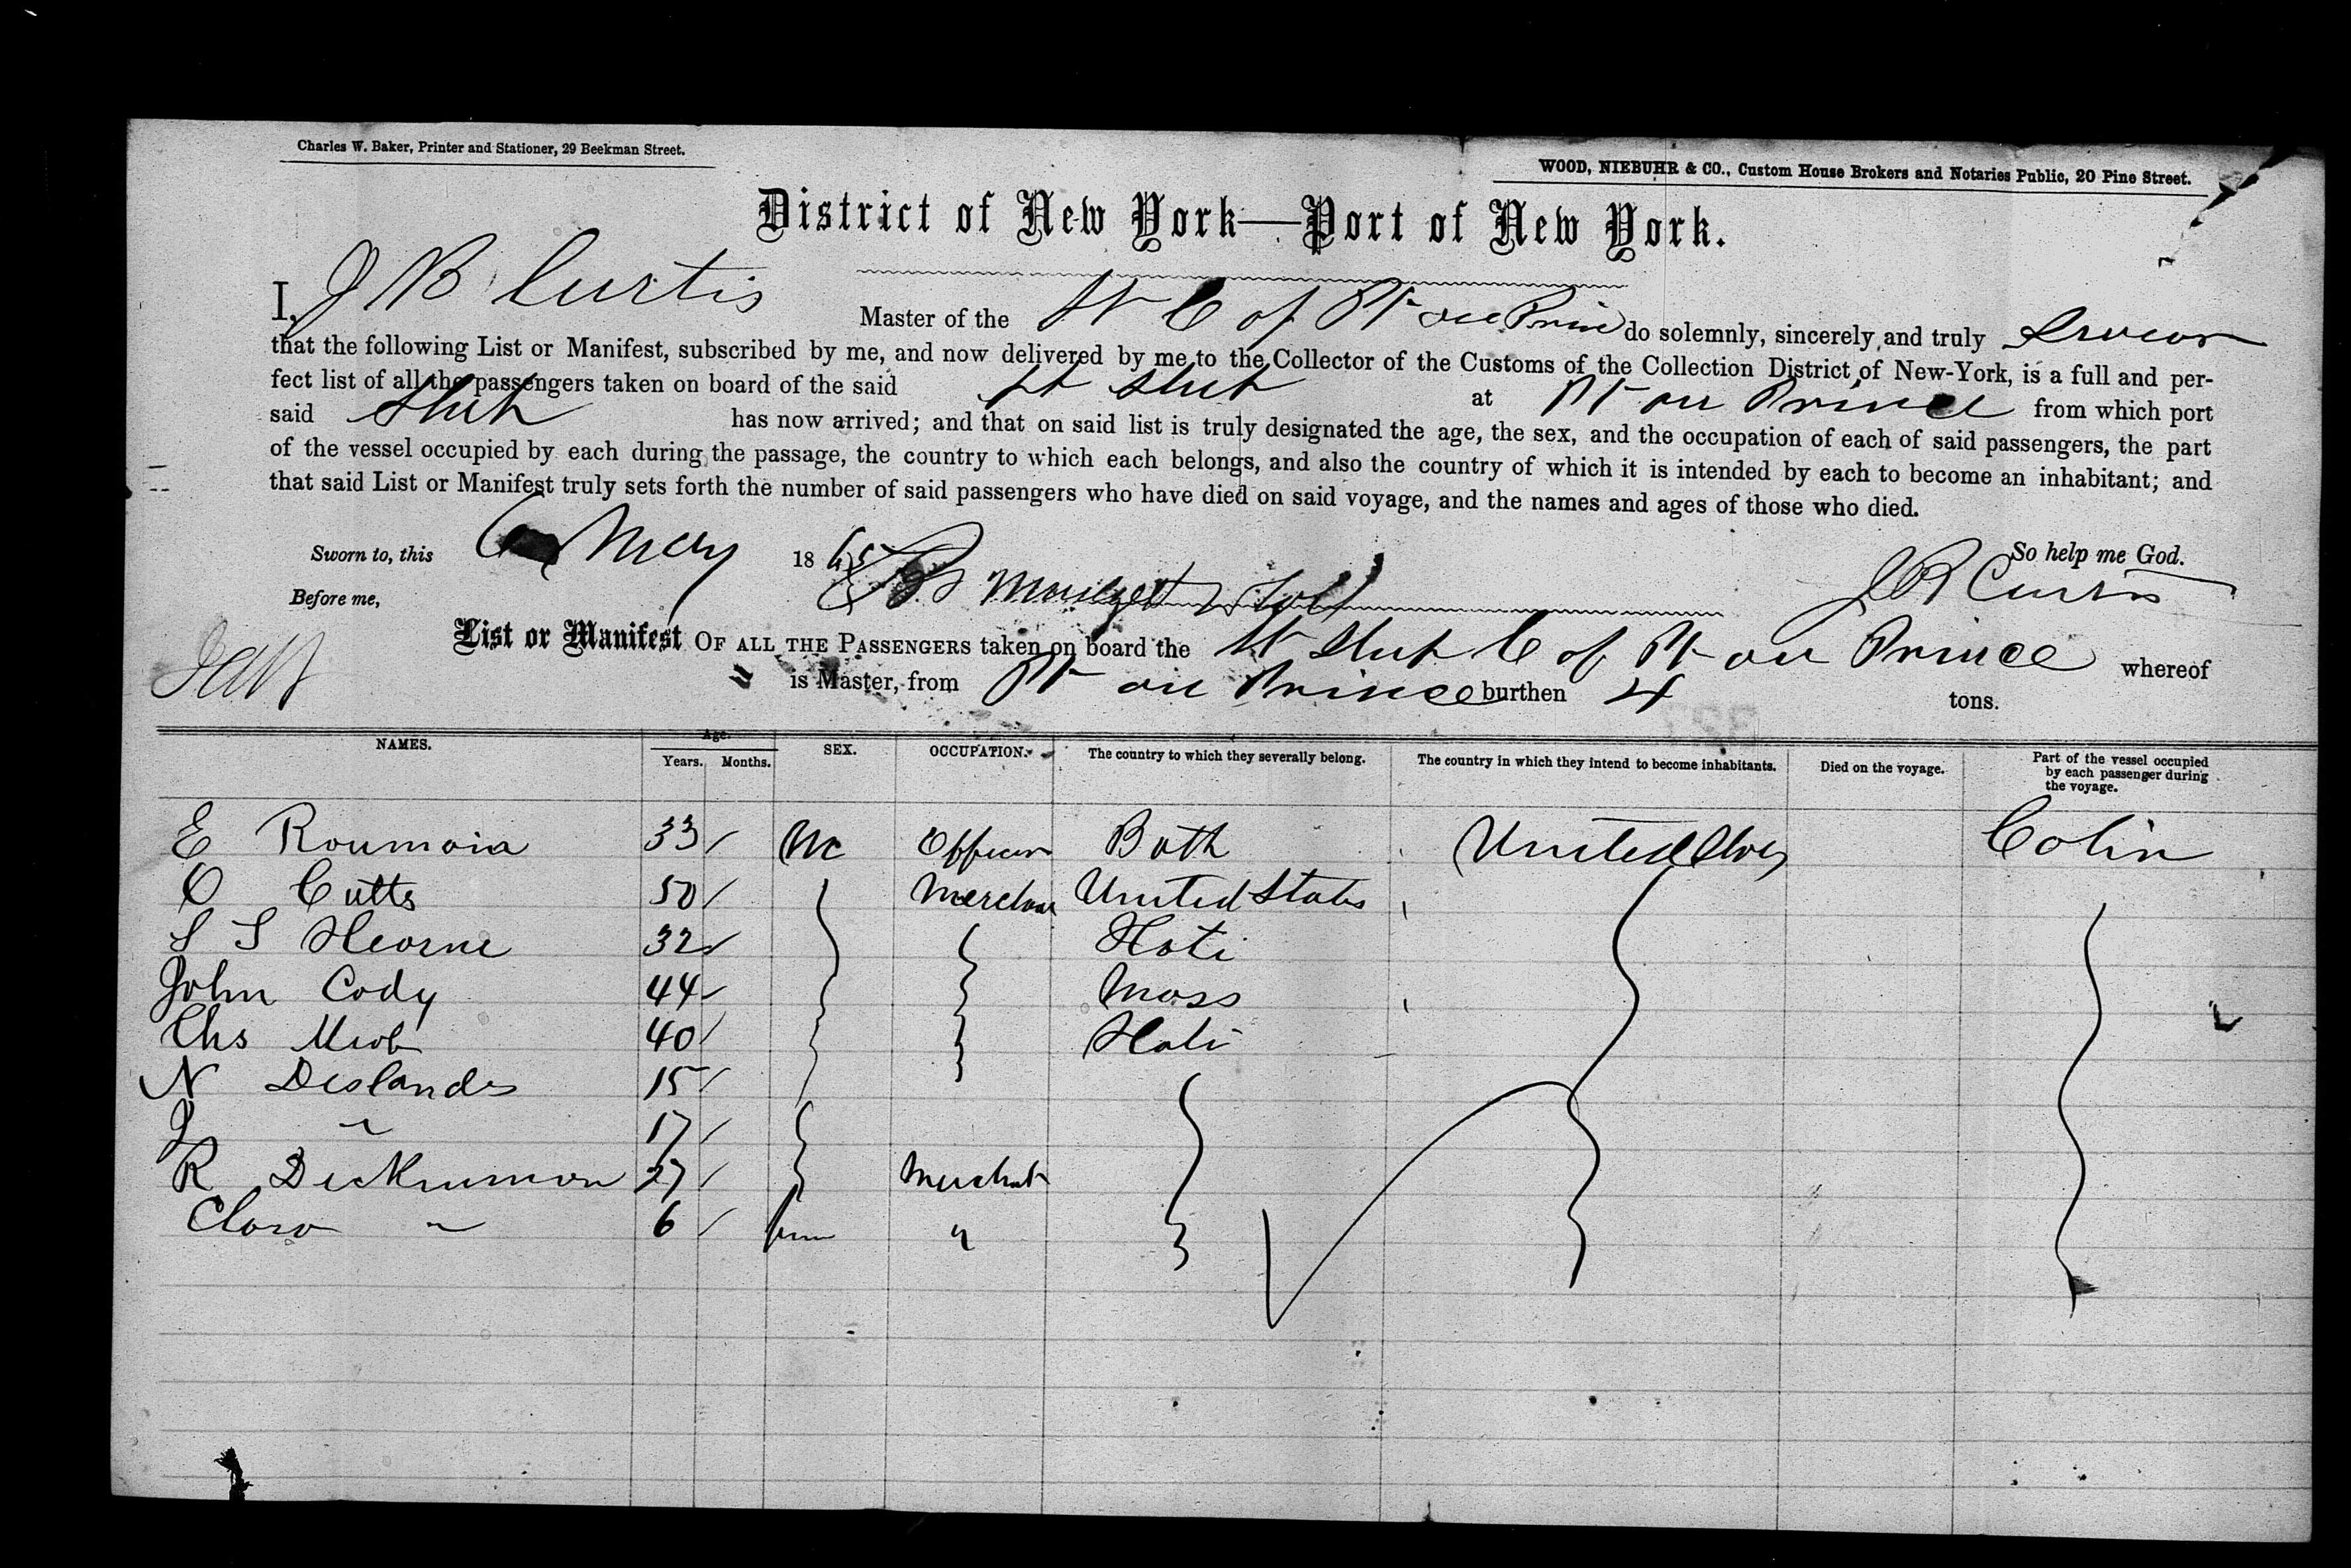 Charles W. Baker, Printer and Stationer, 29 Beekman Street.
WOOD, NIEBUHR & CO., Custom House Brokers and Notaries Public, 20 Pine Street.
District of New York—Port of New York.
I, J B Curtis Master of the C of Pt au Prin do solemnly, sincerely and truly swear
that the following List or Manifest, subscribed by me, and now delivered by me to the Collector of the Customs of the Collection District of New-York, is a full and per-
fect list of all the passengers taken on board of the said at Pt au Prince from which port
said has now arrived; and that on said list is truly designated the age, the sex, and the occupation of each of said passengers, the part
of the vessel occupied by each during the passage, the country to which each belongs, and also the country of which it is intended by each to become an inhabitant; and
that said List or Manifest truly sets forth the number of said passengers who have died on said voyage, and the names and ages of those who died.
Sworn to, this 6 May 1865 So help me God.
Before me, J B Curtis
List or Manifest OF ALL THE PASSENGERS taken on board the C of Pt au Prince whereof
" is Master, from Pt au Prince burthen 4 tons.
NAMES. Age. Years. Months. SEX. OCCUPATION. The country to which they severally belong. The country in which they intend to become inhabitants. Died on the voyage. Part of the vessel occupied by each passenger during the voyage.
E Roumain 33 M Officer United
O Cutts 50 United States
S S Hearne 32 Hati
John Cody 44 Mass
Chs 40 Hati
N Deslandes 15
J " 17
R 27 Merchat
Clara " 6 "